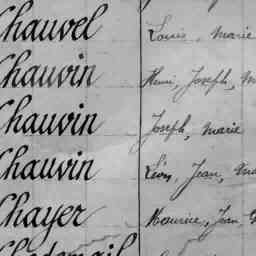 Chauvel Louis, Marie
Chauvin Henri, Joseph, M
Chauvin Joseph, Marie
Chauvin Léon, Jean, Ma
Chayer Maurice, Jean,